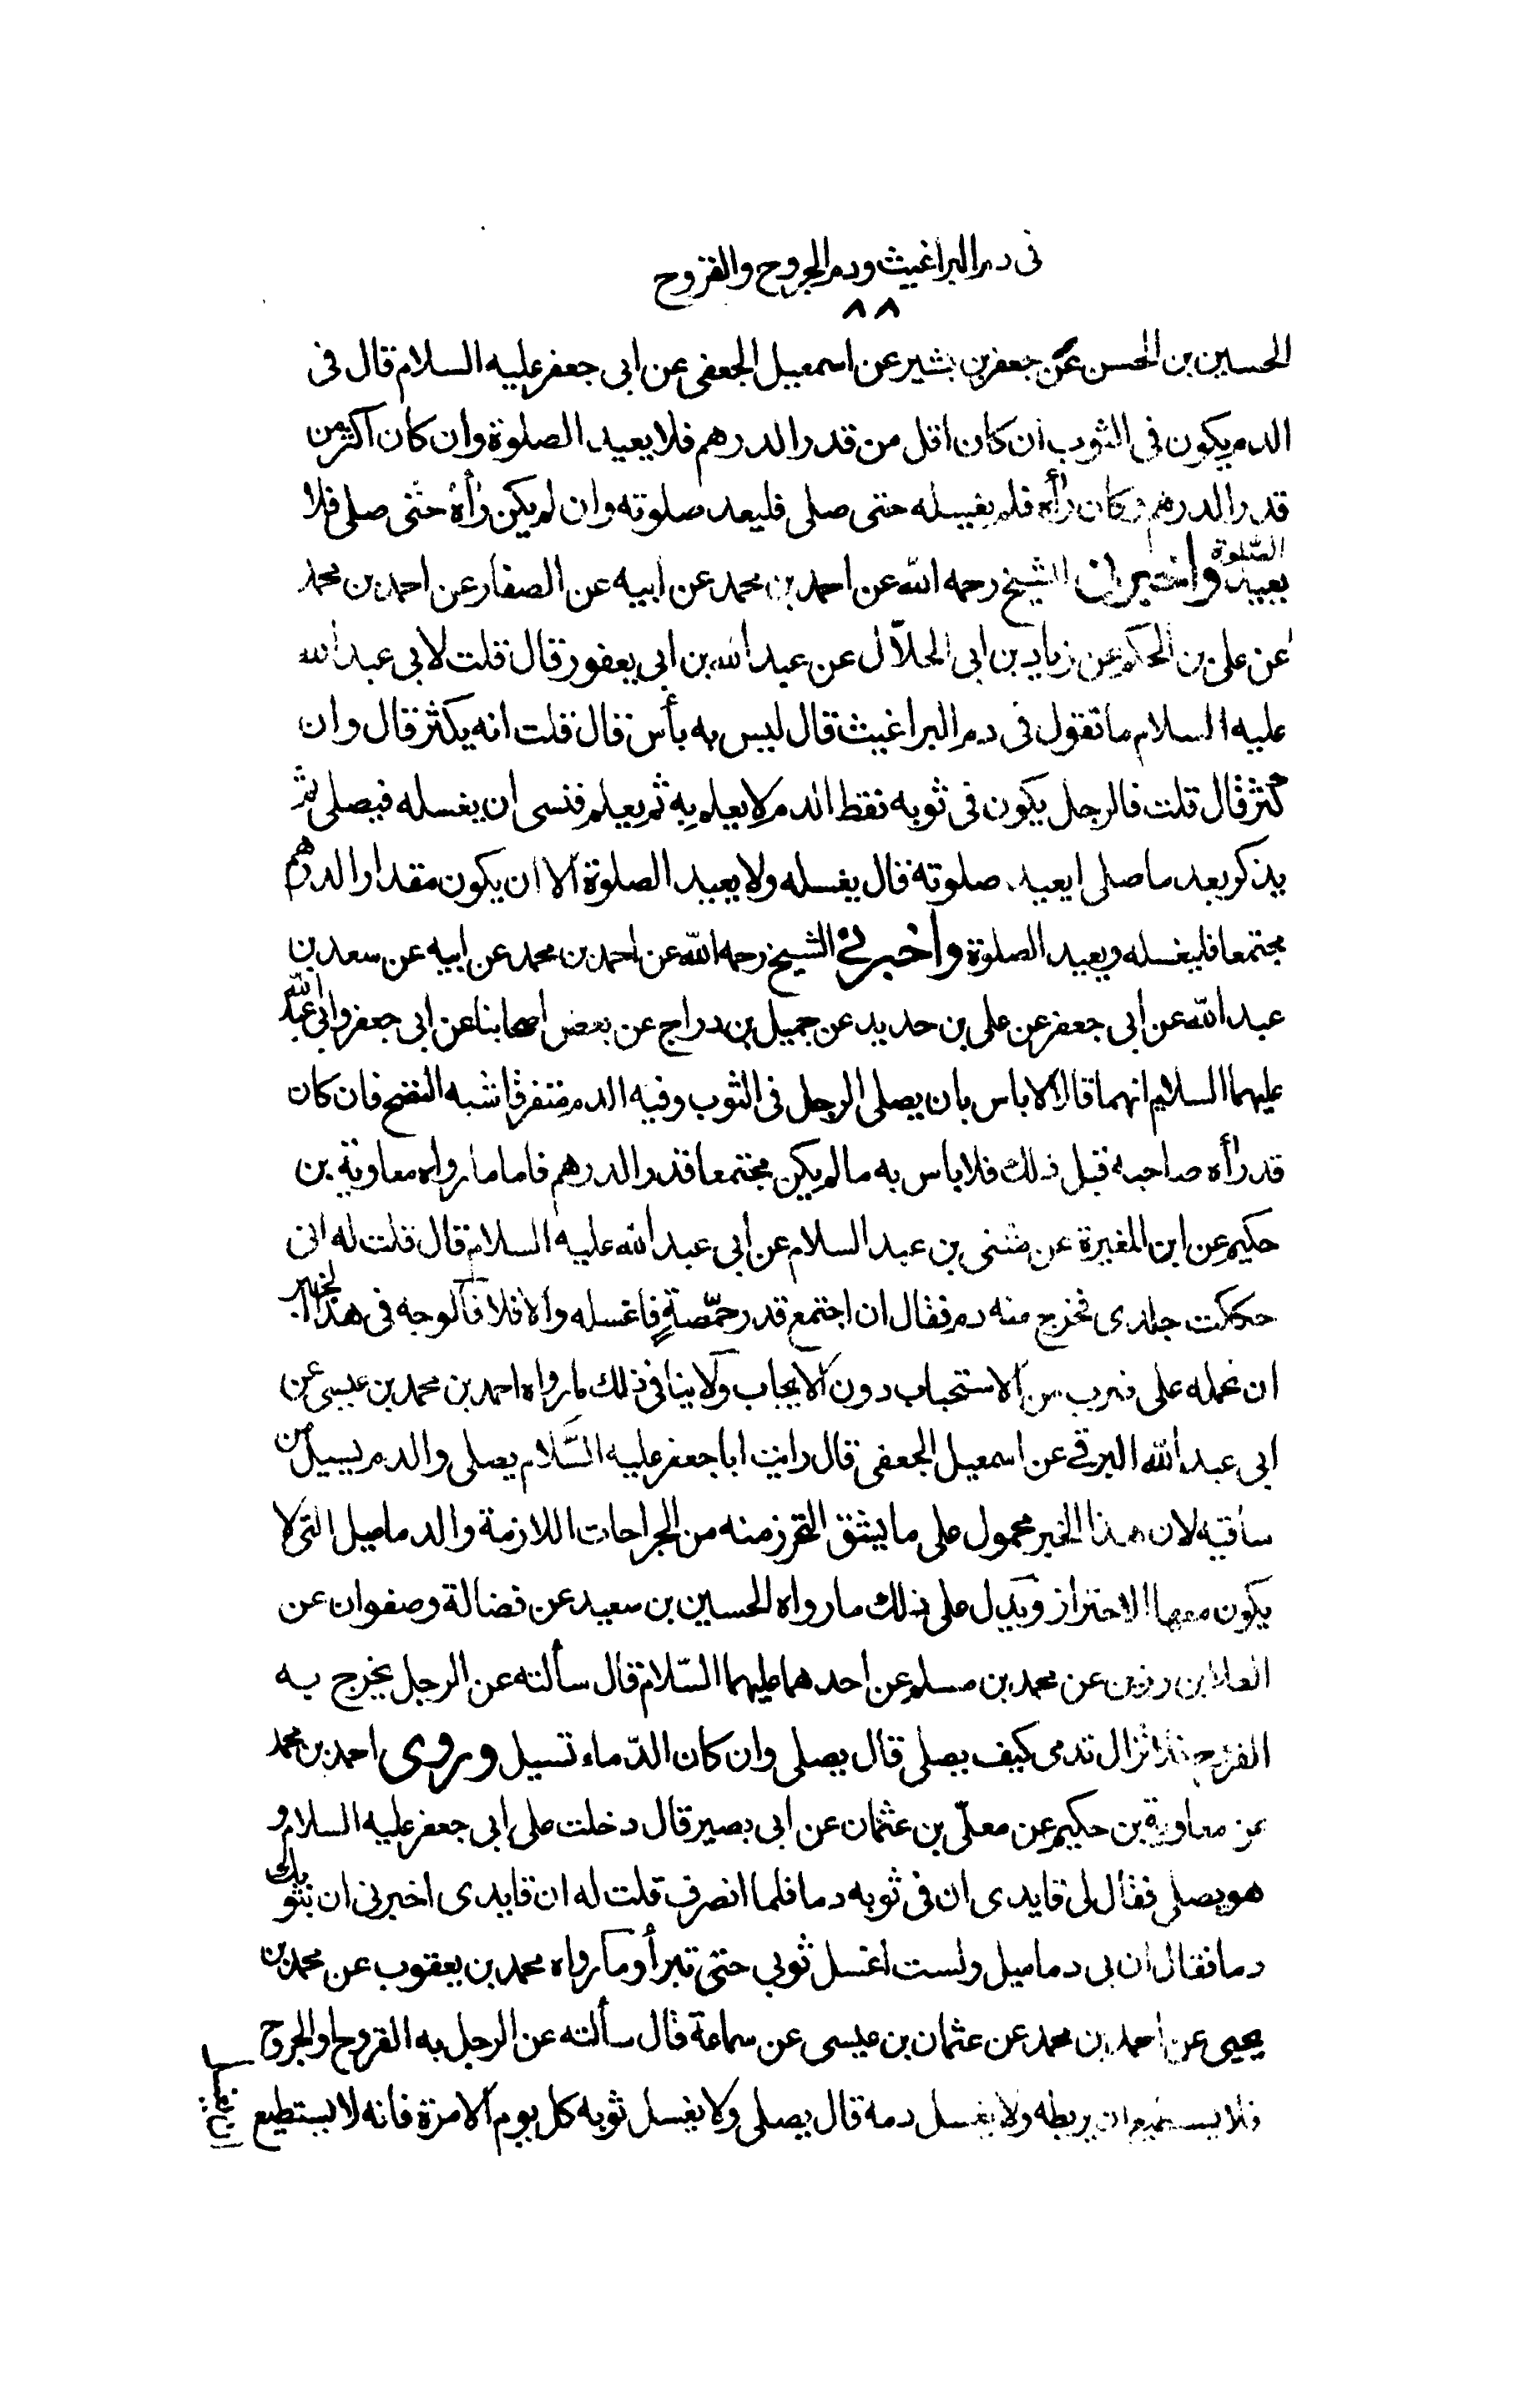 فى دم البراغيث ودم الجروح والقروح
٨٨
الحسين بن الحسن عن جعفر بن بشير عن اسمعيل الجعفى عن ابى جعفر عليه السلام قال فى
الدم يكون فى الثوب ان كان اقل من قدر الدرهم فلا يعيد الصلوة وان كان اكثر من
قدر الدرهم وكان رأه فلم يغسله حتى صلى فليعد صلوته وان لم يكن رأه حتى صلى فلا
يعيد الصلوة واخبرنى الشيخ رحمه الله عن احمد بن محمد عن ابيه عن الصفار عن احمد بن محمد
عن على بن الحكم عن زياد بن ابى الحلّال عن عبد الله بن ابى يعفور قال قلت لابى عبد الله
عليه السلام ما تقول فى دم البراغيث قال ليس به بأس قال قلت انه يكثر قال وان
كثر قال قلت فالرجل يكون فى ثوبه نقط الدم لا يعلم به ثم يعلم فنسى ان يغسله فيصلى ثم
يذكر بعد ما صلى ايعيد صلوته قال يغسله ولا يعيد الصلوة الا ان يكون مقدار الدرهم
مجتمعا فليغسله ويعيد الصلوة واخبرنى الشيخ رحمه الله عن احمد بن محمد عن ابيه عن سعد بن
عبد الله عن ابى جعفر عن على بن حديد عن جميل بن دراج عن بعض اصحابنا عن ابى جعفر وابى عبد الله
عليهما السلام انهما قالا لا باس بان يصلى الرجل فى الثوب وفيه الدم متفرقا شبه النضح فان كان
قد رأه صاحبه قبل ذلك فلا باس به ما لم يكن مجتمعا قدر الدرهم فاما ما رواه معاوية بن
حكيم عن ابن المغيرة عن مثنى بن عبد السلام عن ابى عبد الله عليه السلام قال قلت له انى
حككت جلدى فخرج منه دم فقال ان اجتمع قدر حمّصةٍ فاغسله والا فلا فالوجه فى هذا الخبر
ان نحمله على ضرب من الاستحباب دون الايجاب ولا ينافى ذلك ما رواه احمد بن محمد بن عيسى عن
ابى عبد الله البرقى عن اسمعيل الجعفى قال رايت ابا جعفر عليه السّلام يصلى والدم يسيل من
ساقيه لان هذا الخبر محمول على ما يشق التحرز منه من الجراحات اللازمة والدماميل التى لا
يكون معها الاحتراز ويدل على ذلك ما رواه الحسين بن سعيد عن فضالة وصفوان عن
العلا بن رزين عن محمد بن مسلم عن احدهما عليهما السّلام قال سألته عن الرجل يخرج به
القروح فلا تزال تدمى كيف يصلى قال يصلى وان كان الدّماء تسيل وروى احمد بن محمد
عن معاوية بن حكيم عن معلّى بن عثمان عن ابى بصير قال دخلت على ابى جعفر عليه السلام و
هو يصلى فقال لى قايدى ان فى ثوبه دما فلما انصرف قلت له ان قايدى اخبرنى ان بثوبك
دما فقال ان بى دماميل ولست اغسل ثوبى حتى تبرأ وما رواه محمد بن يعقوب عن محمد بن
يحيى عن احمد بن محمد عن عثمان بن عيسى عن سماعة قال سألته عن الرجل به القروح او الجروح
فلا يستطيع ان يربطه ولا يغسل دمه قال يصلى ولا يغسل ثوبه كل يوم الا مرة فانه لا يستطيع